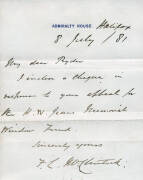 ADMIRALTY HOUSE, Halifax
8 July / 81
My dear Ryder
I inclose a cheque in
response to your appeal for
the H. W. Jeans Greenwich
Window Fund.
Sincerely yours
F. L. McClintock